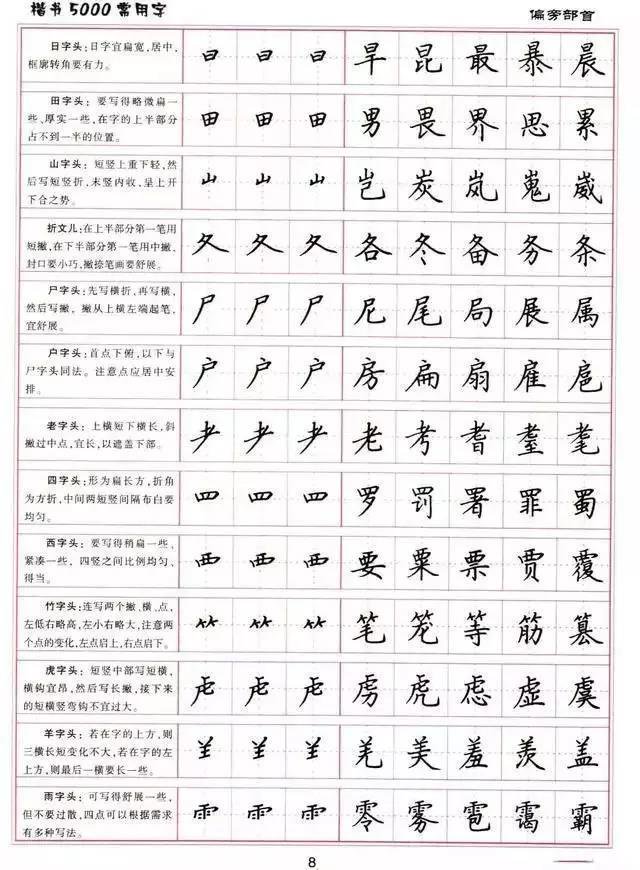 楷书5000常用字 偏旁部首
日字头：日字宜扁宽，居中，
框廓转角要有力。
日 日 日 旱 昆 最 暴 晨
田字头：要写得略微扁一
些，厚实一些，在字的上半部分
占不到一半的位置。
田 田 田 男 畏 界 思 累
山字头：短竖上重下轻，然
后写短竖折，末竖内收，呈上开
下合之势。
山 山 山 岂 炭 岚 嵬 崴
折文儿：在上半部分第一笔用
短撇，在下半部分第一笔用中撇，
封口要小巧，撇捺笔画要舒展。
夂 夂 夂 各 冬 备 务 条
尸字头：先写横折，再写横，
然后写撇，撇从上横左端起笔，
宜舒展。
尸 尸 尸 尼 尾 局 展 属
户字头：首点下俯，以下与
尸字头同法。注意点应居中安
排。
户 户 户 房 扁 扇 雇 扈
老字头：上横短下横长，斜
撇过中点，宜长，以遮盖下部。
耂 耂 耂 老 考 耆 耋 耄
四字头：形为扁长方，折角
为方折，中间两短竖间隔布白要
均匀。
罒 罒 罒 罗 罚 署 罪 蜀
西字头：要写得稍扁一些、
紧凑一些，四竖之间比例均匀、
得当。
覀 覀 覀 要 粟 票 贾 覆
竹字头：连写两个撇、横、点，
左低右略高，左小右略大，注意两
个点的变化，左点启上，右点启下。
⺮ ⺮ ⺮ 笔 笼 等 筋 篡
虎字头：短竖中部写短横，
横钩宜昂，然后写长撇，接下来
的短横竖弯钩不宜过大。
虍 虍 虍 虏 虎 虑 虚 虞
羊字头：若在字的上方，则
三横长短变化不大，若在字的左
上方，则最后一横要长一些。
⺷ ⺷ ⺷ 羌 美 羞 羡 盖
雨字头：可写得舒展一些，
但不要过散，四点可以根据需求
有多种写法。
⻗ ⻗ ⻗ 零 雾 雹 霭 霸
8